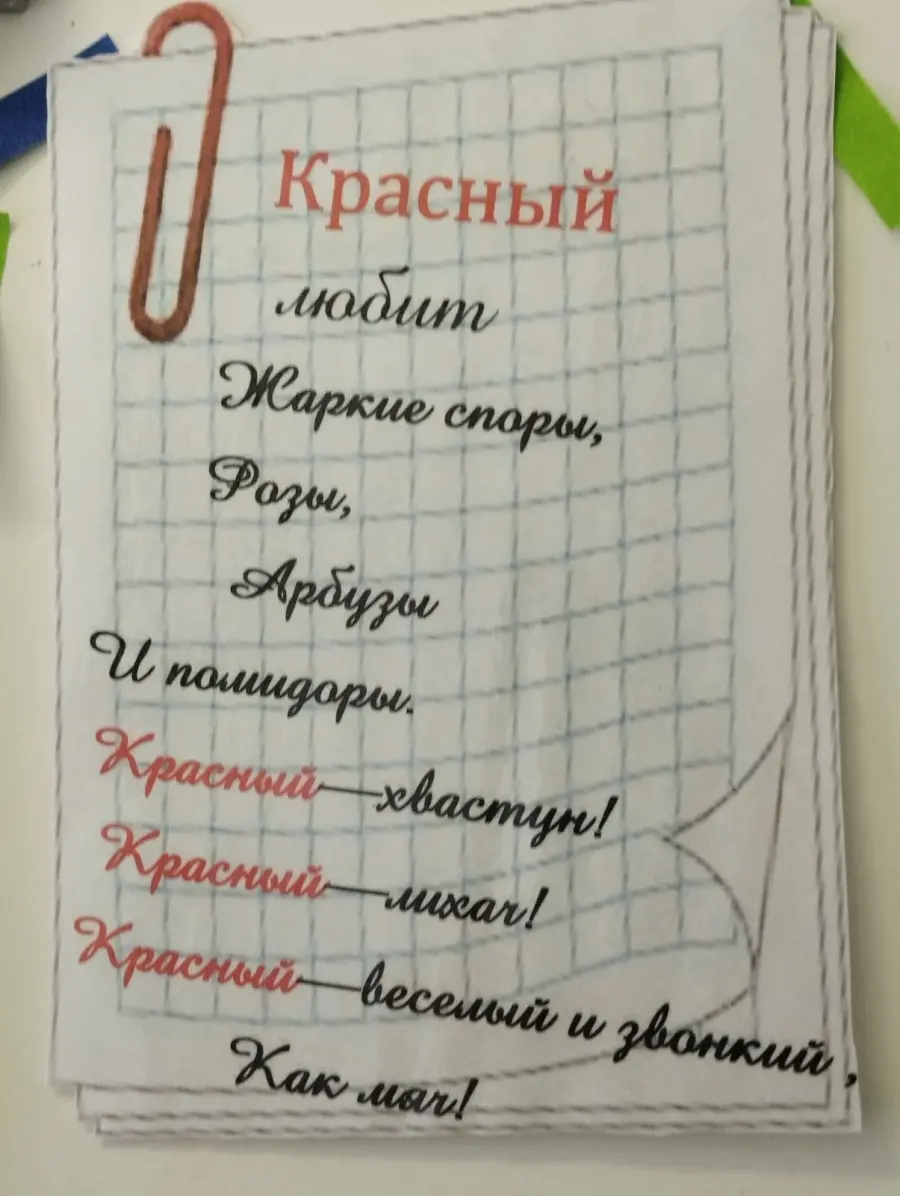 Красный
любит
Жаркие споры,
Розы,
Арбузы
И помидоры.
Красный—хвастун!
Красный—лихач!
Красный—веселый и звонкий,
Как мяч!